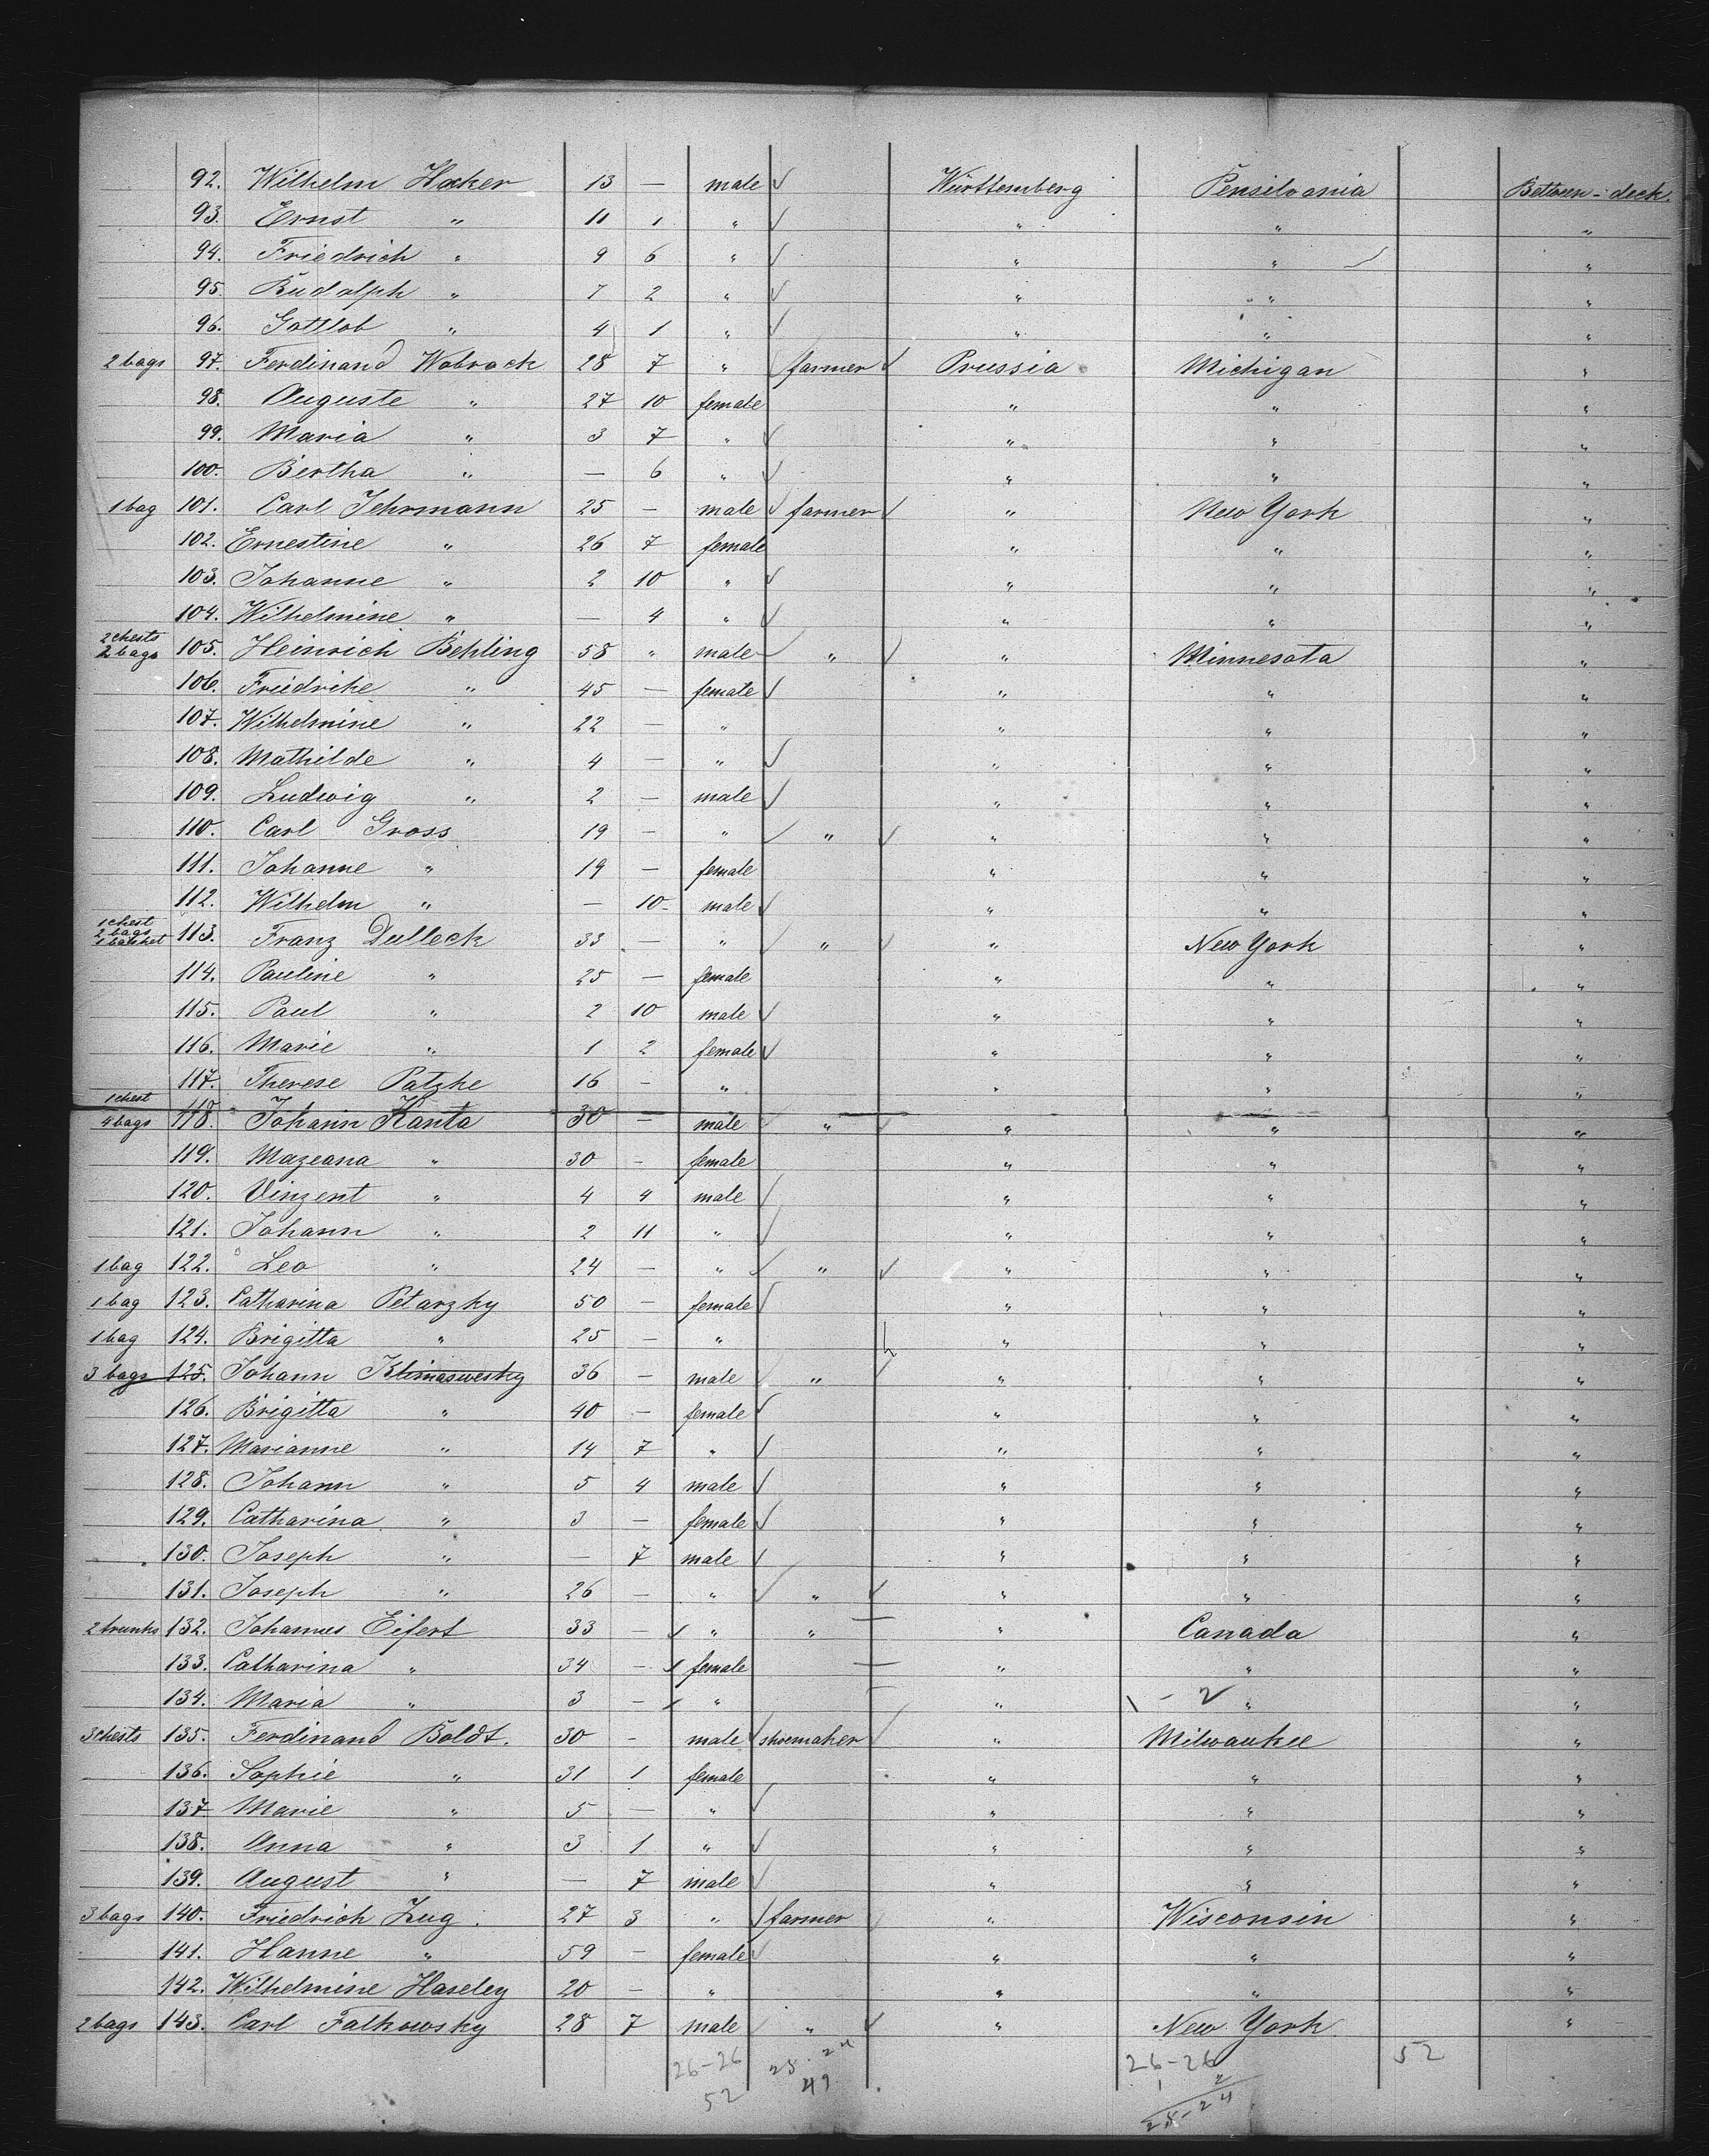 92. Wilhelm Hacker 13 — male ✓ Württemberg Pensilvania Between-deck.
93. Ernst " 11 1 " ✓ " " "
94. Friedrich " 9 6 " ✓ " " "
95. Rudolph " 7 2 " ✓ " " "
96. Gottlob " 4 1 " ✓ " " "
2 bags 97. Ferdinand Wobrock 28 7 " farmer ✓ Prussia Michigan "
98. Auguste " 27 10 female " " "
99. Maria " 3 7 " ✓ " " "
100. Bertha " — 6 " ✓ " " "
1 bag 101. Carl Jehrmann 25 — male ✓ farmer ✓ " New York "
102. Ernestine " 26 7 female " " "
103. Johanne " 2 10 " ✓ " " "
104. Wilhelmine " — 4 " ✓ " " "
2 chests
2 bags 105. Heinrich Behling 58 " male ✓ " ✓ " Minnesota "
106. Friedrike " 45 — female ✓ " " "
107. Wilhelmine " 22 — " " " "
108. Mathilde " 4 — " ✓ " " "
109. Ludwig " 2 — male ✓ " " "
110. Carl Gross 19 — " ✓ " ✓ " " "
111. Johanne " 19 — female " " "
112. Wilhelm " — 10 male ✓ " " "
1 chest
2 bags
1 basket 113. Franz Dulleck 33 — " ✓ " ✓ " New York "
114. Pauline " 25 — female " " "
115. Paul " 2 10 male ✓ " " "
116. Marie " 1 2 female ✓ " " "
117. Therese Patzke 16 — " " " "
1 chest
4 bags 118. Johann Kanta 30 — male ✓ " ✓ " " "
119. Mazeana " 30 — female " " "
120. Vinzent " 4 4 male ✓ " " "
121. Johann " 2 11 " ✓ " " "
1 bag 122. Leo " 24 — " ✓ " ✓ " " "
1 bag 123. Catharina Petarzky 50 — female ✓ " " "
1 bag 124. Brigitta " 25 — " " " "
3 bags 125. Johann Klimaswesky 36 — male ✓ " ✓ " " "
126. Brigitta " 40 — female ✓ " " "
127. Marianne " 14 7 " ✓ " " "
128. Johann " 5 4 male ✓ " " "
129. Catharina " 3 — female ✓ " " "
130. Joseph " — 7 male ✓ " " "
131. Joseph " 26 — " ✓ " ✓ " " "
2 trunks 132. Johannes Eifert 33 — " " — " Canada "
133. Catharina " 34 — female — " " "
134. Maria " 3 — " — " 1 - 2 " "
3 chests 135. Ferdinand Boldt. 30 — male ✓ shoemaker ✓ " Milwaukee "
136. Sophie " 31 1 female " " "
137. Marie " 5 — " ✓ " " "
138. Anna " 3 1 " ✓ " " "
139. August " — 7 male ✓ " " "
3 bags 140. Friedrich Zug. 27 3 " farmer ✓ " Wisconsin "
141. Hanne " 59 — female ✓ " " "
142. Wilhelmine Haseley 20 — " " " "
2 bags 143. Carl Falkowsky 28 7 male ✓ " ✓ " New York "
26-26 25. 24 26-26 52
52 49 1 2
25-24